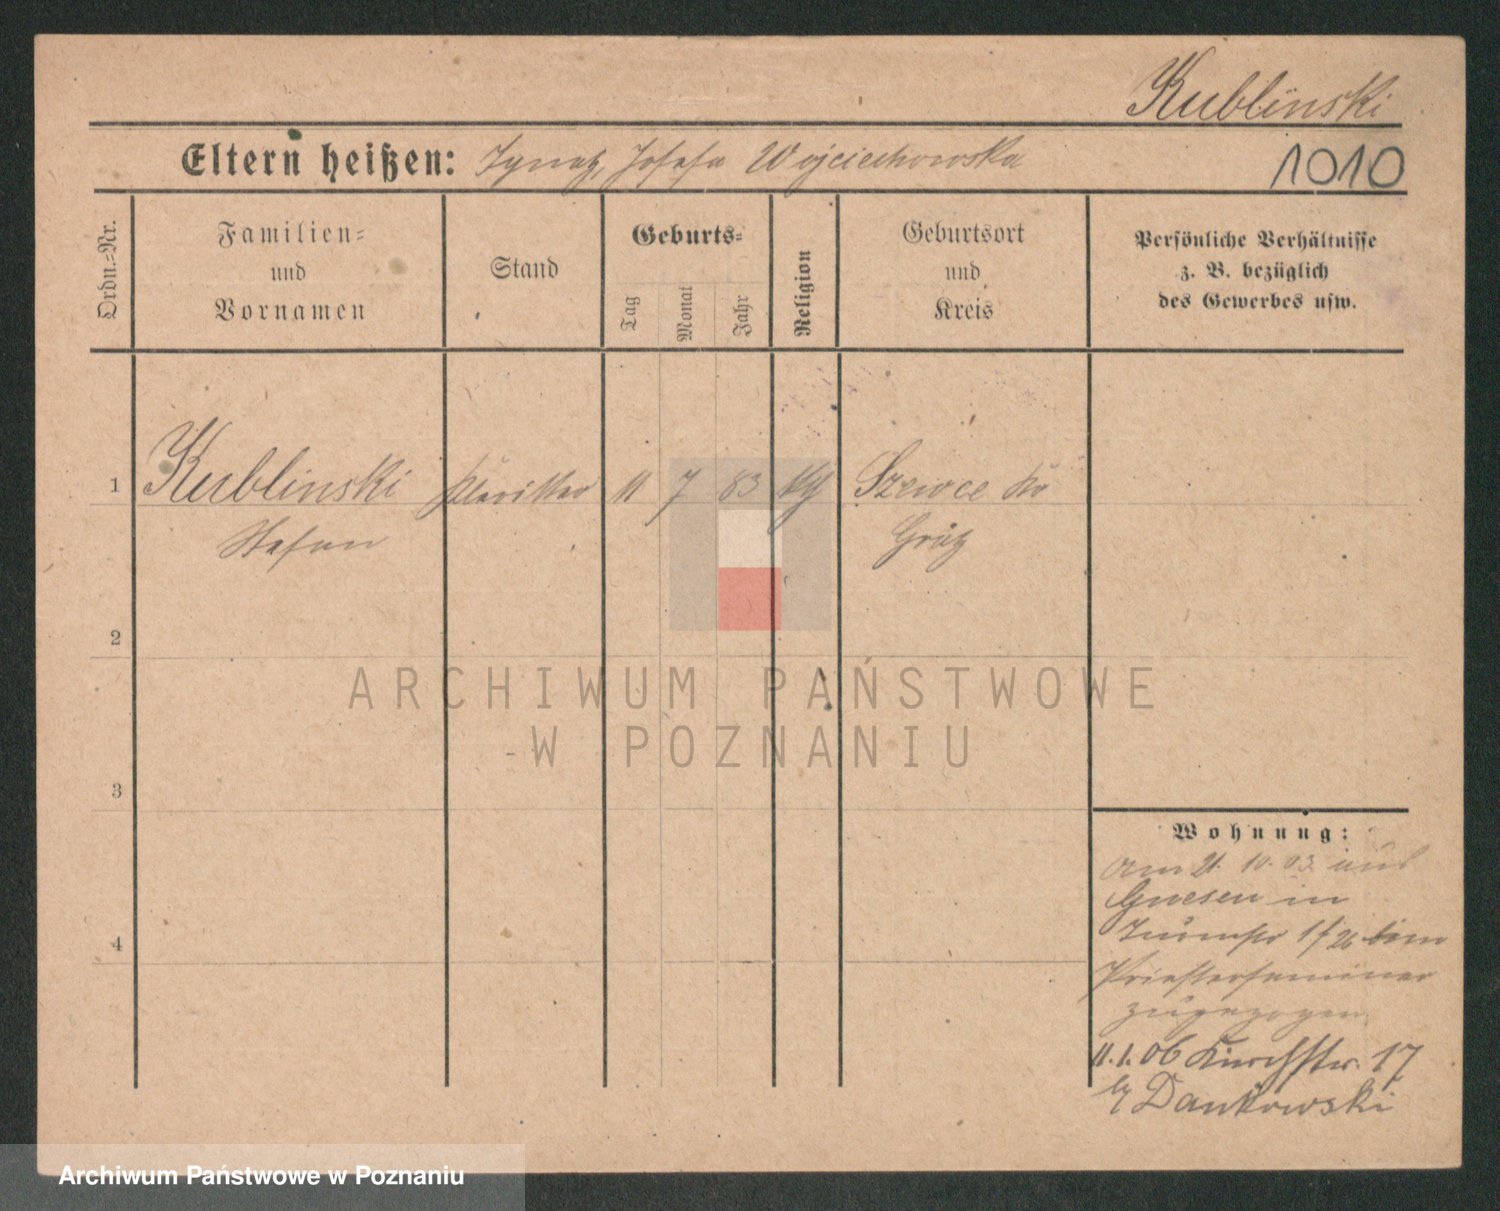 Kublinski
Eltern heißen: Ignatz, Josefa Wojciechowska
1010
Ordn.-Nr.
Familien-
und
Vornamen
Stand
Geburts-
Tag
Monat
Jahr
Religion
Geburtsort
und
Kreis
Persönliche Verhältnisse
z. B. bezüglich
des Gewerbes usw.
1 Kublinski Kleriker 11 7 83 kth Szewce Kr
Stefan Grätz
2
3
4
Wohnung:
Am 21. 10. 03 aus
Gnesen in
1/26
Priesterseminar
zugezogen
11.1.06 Kirchstr. 17
b/ Dankowski
ARCHIWUM PAŃSTWOWE
W POZNANIU
Archiwum Państwowe w Poznaniu